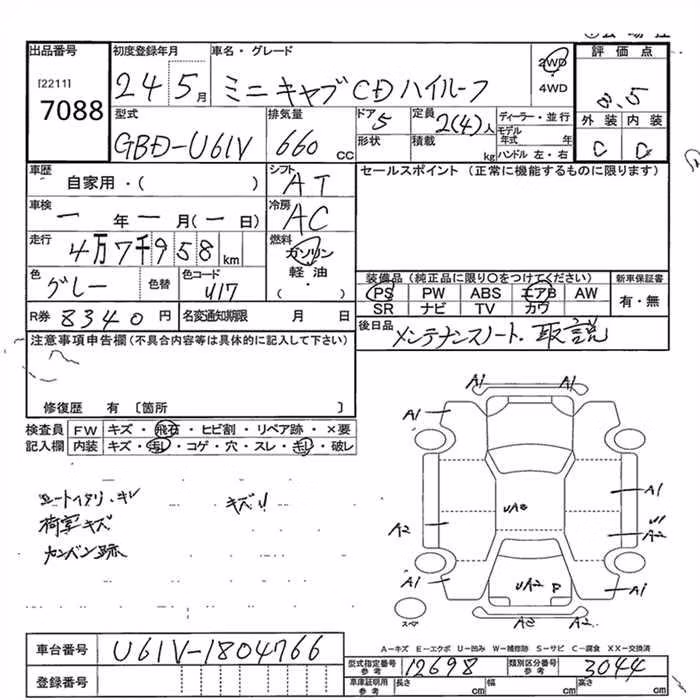 出品番号 初度登録年月 車名・グレード 2WD 評価点
[2211] 24 5月 ミニキャブCDハイルーフ 4WD 3.5
7088
型式 排気量 ドア 定員 ディーラー・並行 外装 内装
GBD-U61V 660cc 5 2(4)人 モデル年式 年 C D
形状 積載 kg ハンドル 左・右
車歴 シフト セールスポイント (正常に機能するものに限ります)
自家用・( ) AT
車検 冷房
一年一月(一日) AC
走行 燃料
4万7千958km ガソリン
軽油
( )
色 色替 色コード 装備品(純正品に限り〇をつけてください) 新車保証書
グレー U17 PS PW ABS エアB AW 有・無
SR ナビ TV カワ
R券 8340円 名変通知期限 月 日 後日品
メンテナンスノート・取説
注意事項申告欄(不具合内容等は具体的に記入して下さい)
修復歴 有 〔箇所 〕
検査員 FW キズ・飛石・ヒビ割・リペア跡・×要
記入欄 内装 キズ・汚レ・コゲ・穴・スレ・キレ・破レ
キズU
キズ
カンバン跡
A1 A1
A1
A1
UA3
A2 U1
A2
A1 UA2 P A1
スペ A3 A2
A-キズ E-エクボ U-凹み W-補修跡 S-サビ C-腐食 XX-交換済
車台番号 U61V-1804766
型式指定番号 参考 12698 類別区分番号 参考 3044
登録番号 車庫証明用 参考 長さ cm 幅 cm 高さ cm